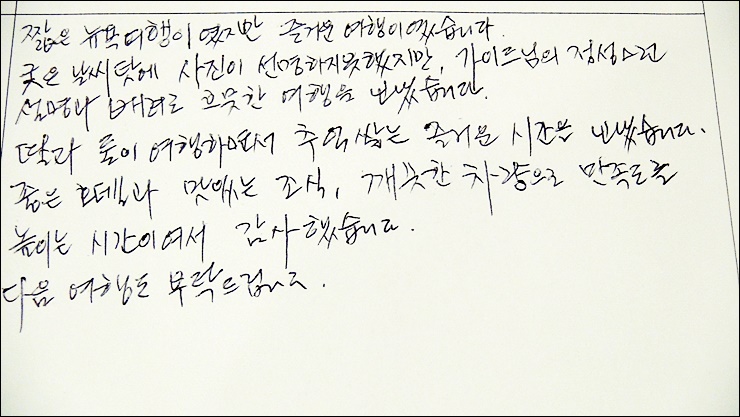 짧은 뉴욕여행이였지만 즐거운 여행이였습니다.
궂은 날씨 탓에 사진이 선명하지못했지만, 가이드님의 정성스런
설명과 배려로 흐뭇한 여행을 보냈습니다.
딸과 둘이 여행하면서 추억쌓는 즐거운 시간을 보냈습니다.
좋은 호텔과 맛있는 조식, 깨끗한 차량으로 만족도를
높이는 시간이여서 감사했습니다.
다음 여행도 부탁드립니다.